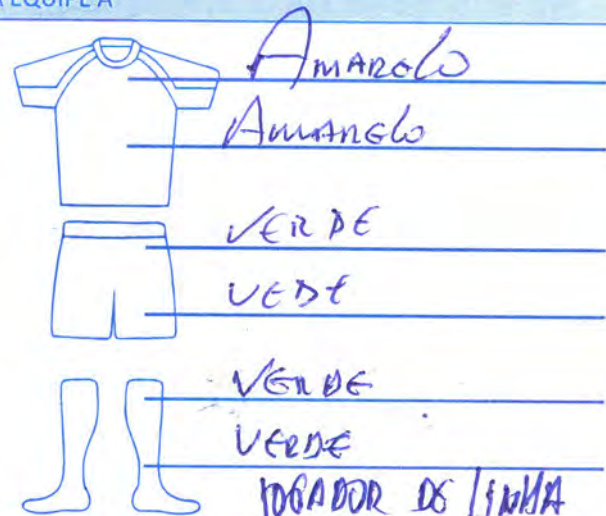 EQUIPE A
AMARELO
AMARELO
VERDE
VEDE
VERDE
VERDE
JOGADOR DE LINHA